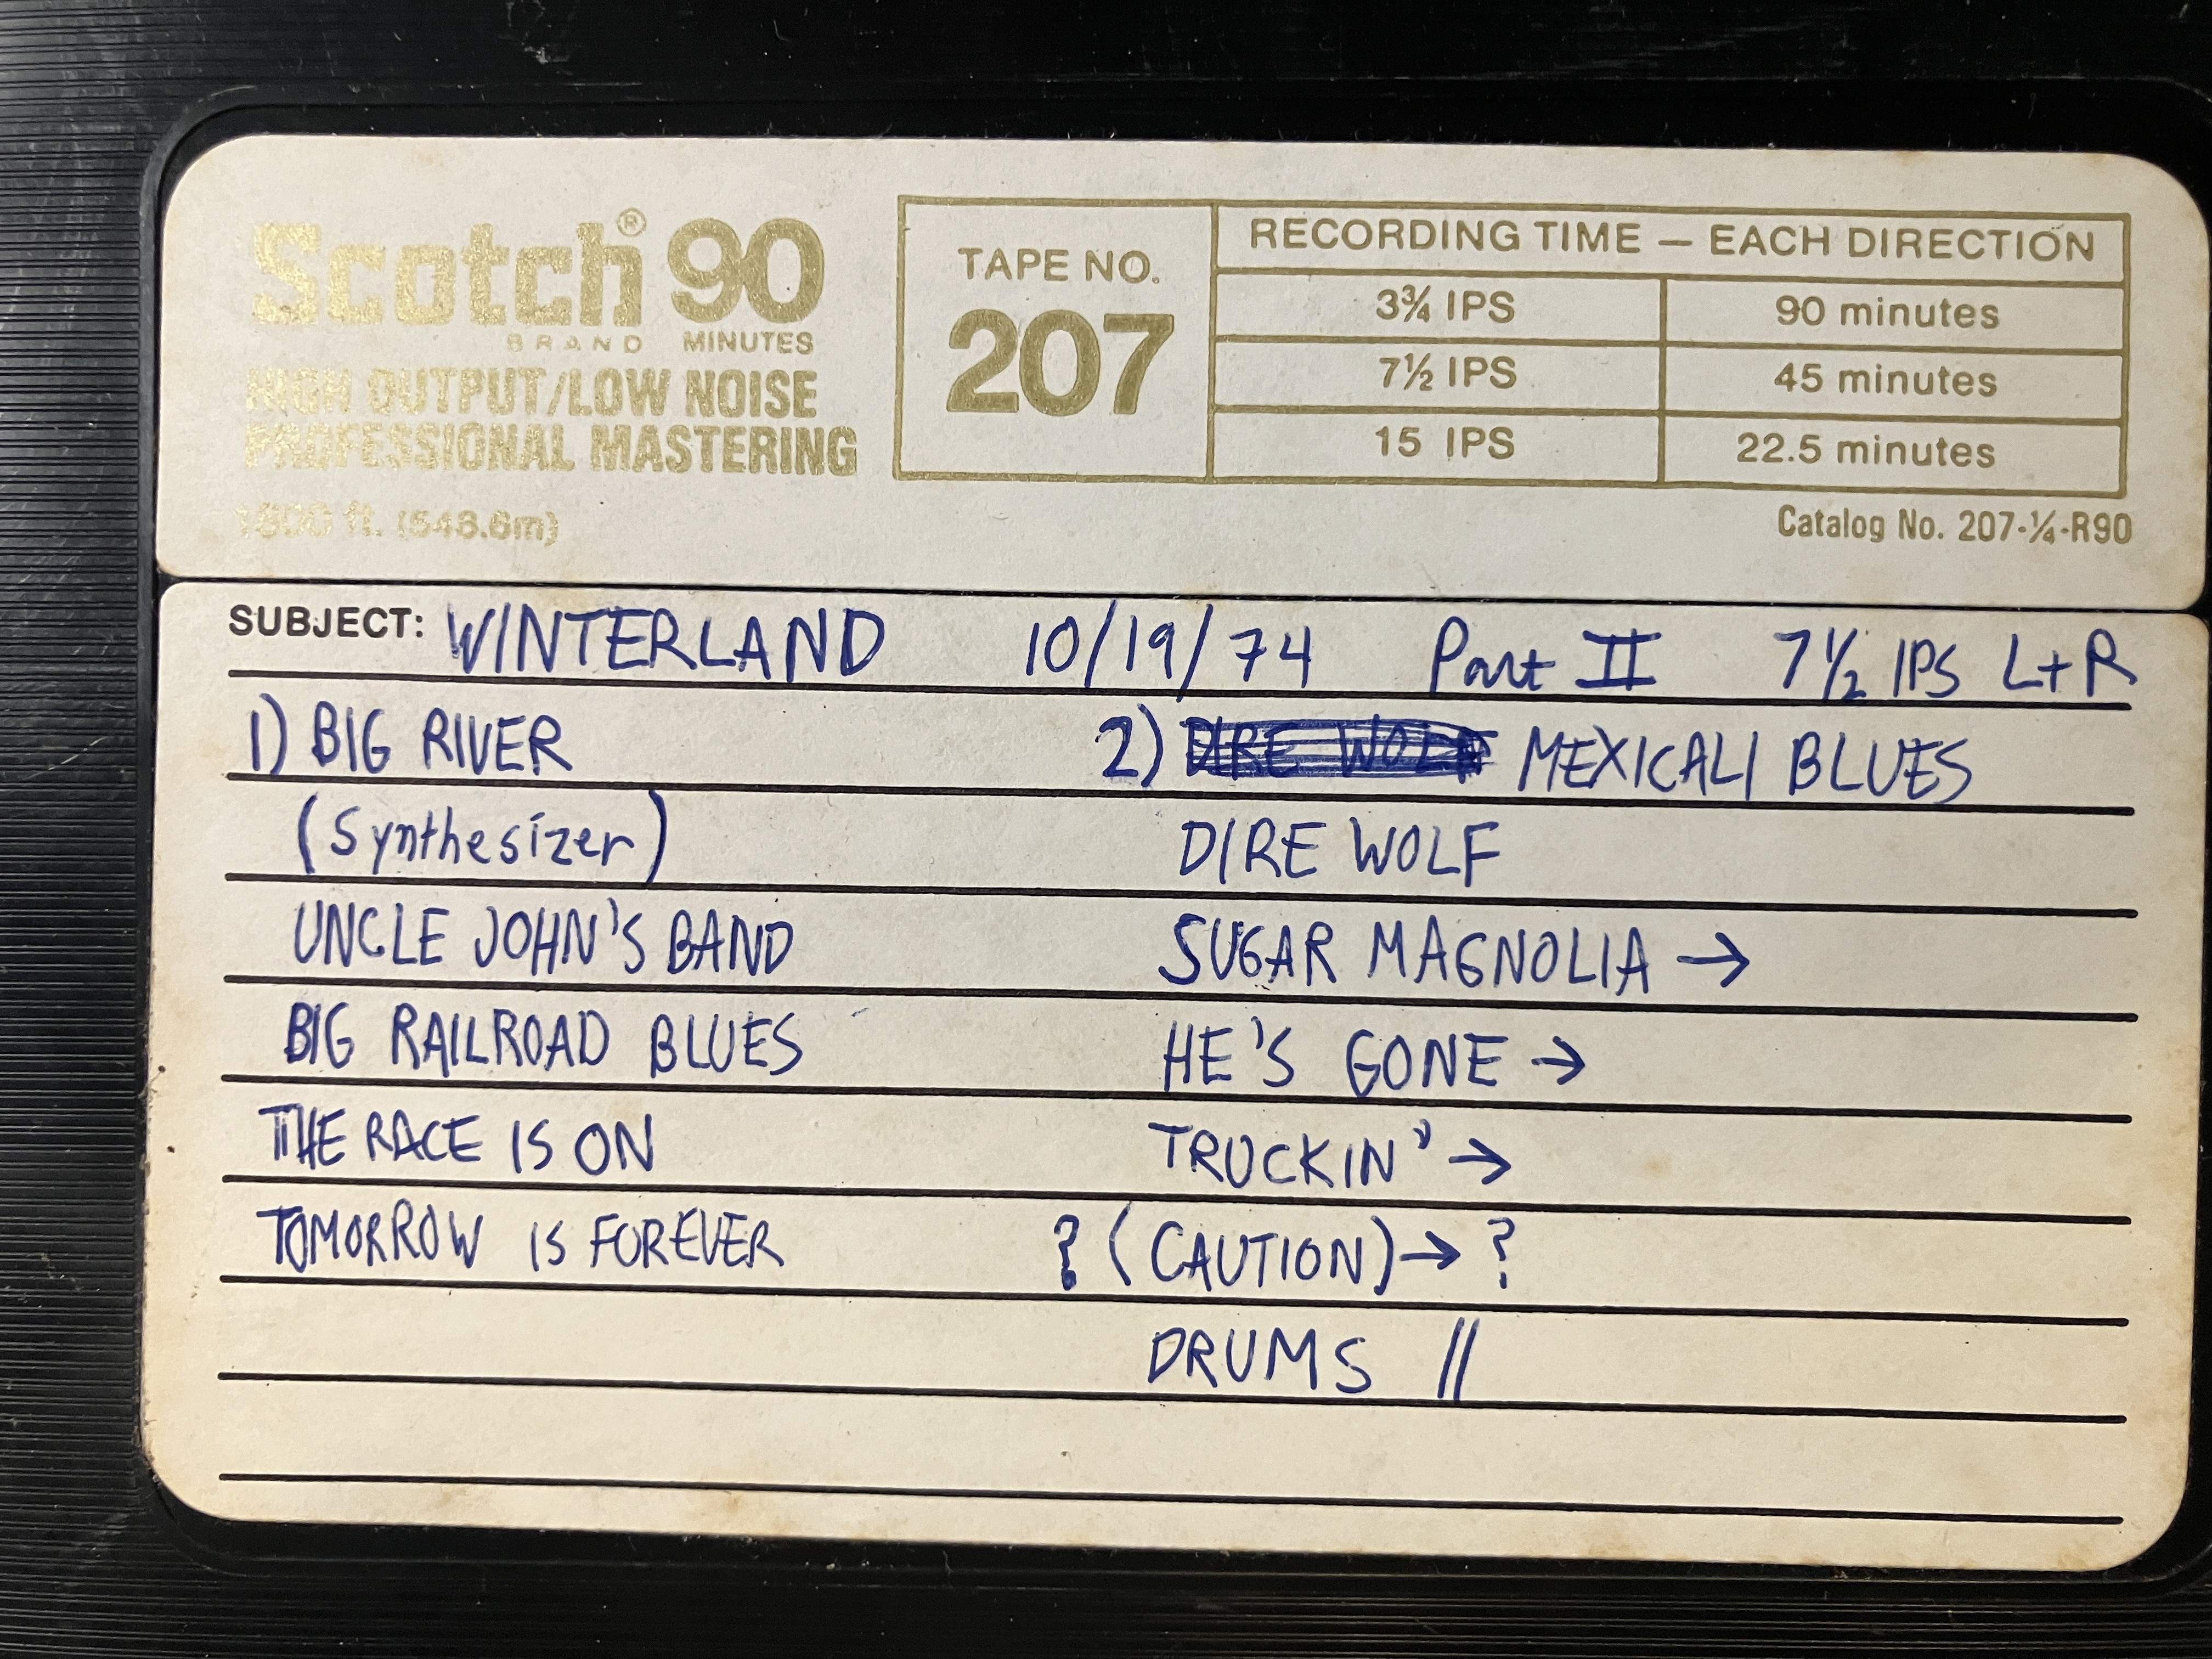 Scotch® 90
BRAND MINUTES
HIGH OUTPUT/LOW NOISE
PROFESSIONAL MASTERING
1800 ft. (548.6m)
TAPE NO.
207
RECORDING TIME — EACH DIRECTION
3¾ IPS 90 minutes
7½ IPS 45 minutes
15 IPS 22.5 minutes
Catalog No. 207-¼-R90
SUBJECT: WINTERLAND 10/19/74 Part II 7½ IPS L+R
1) BIG RIVER
(Synthesizer)
UNCLE JOHN'S BAND
BIG RAILROAD BLUES
THE RACE IS ON
TOMORROW IS FOREVER
2) DIRE WOLF MEXICALI BLUES
DIRE WOLF
SUGAR MAGNOLIA →
HE'S GONE →
TRUCKIN' →
? (CAUTION) → ?
DRUMS //